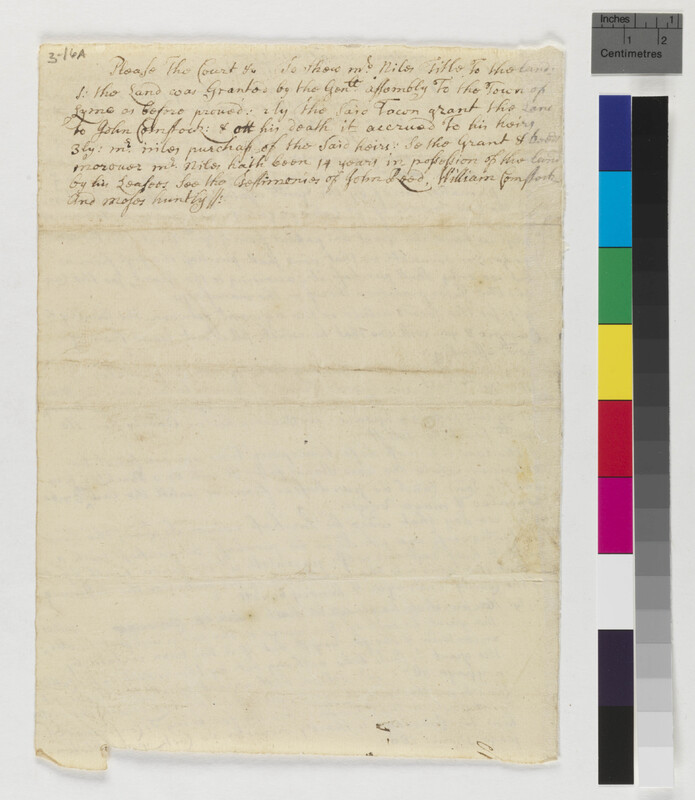 3-16A
Please The Court &c To shew mr Niles Title To the land:
1: the Land was Granted by the Genll assembly To the Town of
Lyme as before proued: 2ly the Said Town grant the Land
To John Comstock: & att his death it accrued To his heirs
3ly: mr niles purchas of the Said heirs: Se the Grant &
morover mr Niles hath been 14 years in possession of the land
by his Leasees See the Testimonies of John Reed, William Comstock
And Moses huntly //:
Inches 1
1 2
Centimetres